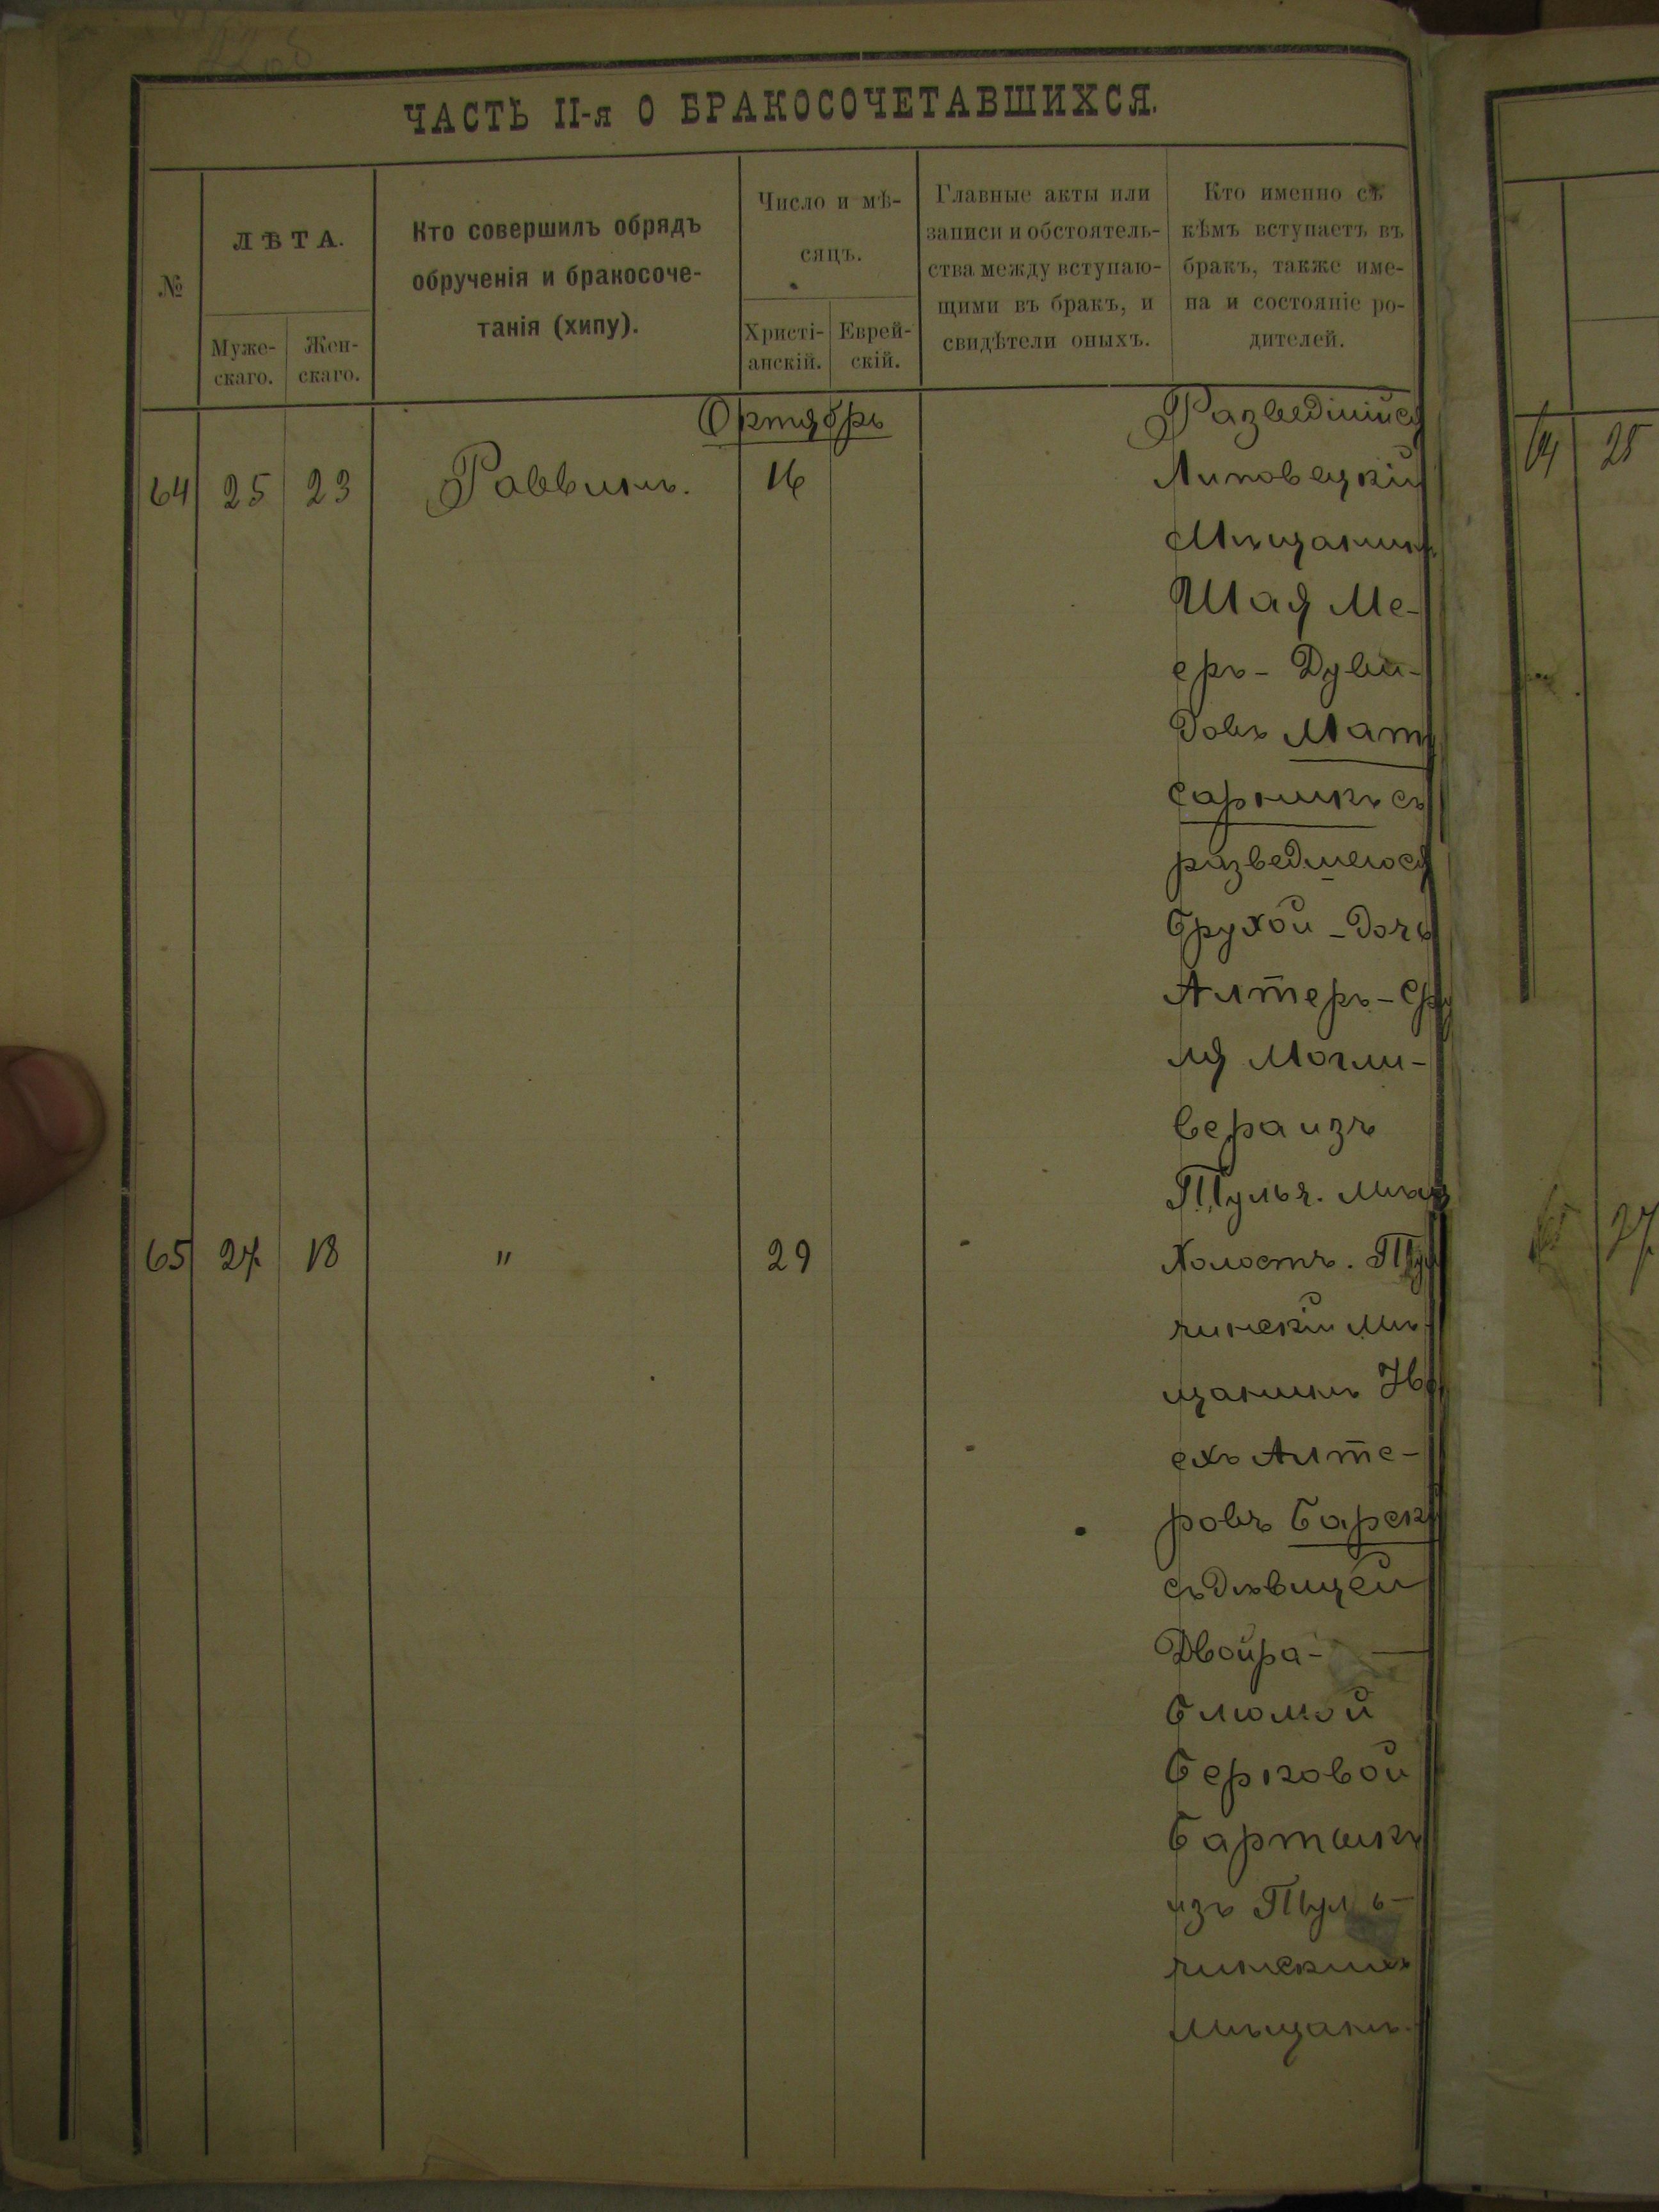 ЧАСТЬ II-я О БРАКОСОЧЕТАВШИХСЯ.
№
ЛѢТА.
Муже-
скаго.
Жен-
скаго.
Кто совершилъ обрядъ
обрученія и бракосоче-
танія (хипу).
Число и мѣ-
сяцъ.
Христі-
анскій.
Еврей-
скій.
Главные акты или
записи и обстоятель-
ства между вступаю-
щими въ бракъ, и
свидѣтели оныхъ.
Кто именно съ
кѣмъ вступаетъ въ
бракъ, также име-
на и состояніе ро-
дителей.
Октябрь
64 25 23 Раввинъ. 16
Разведшійся
Липовецкій
Мѣщанинъ
Шая Ме-
еръ - Дуви-
довъ
сарникъ съ
разведшеюся
Брухой - Дочь
Алтеръ -
ля Могли-
вера изъ
Тульч.
65 27 18 " 29
Холостъ.
чинскій Мѣ-
щанинъ
ехъ Алте-
ровъ
съ Дѣвицей
Двойра-
Блюмой
Берковой
Бартикъ
изъ Туль-
чинскихъ
Мѣщанъ.
64 25
27